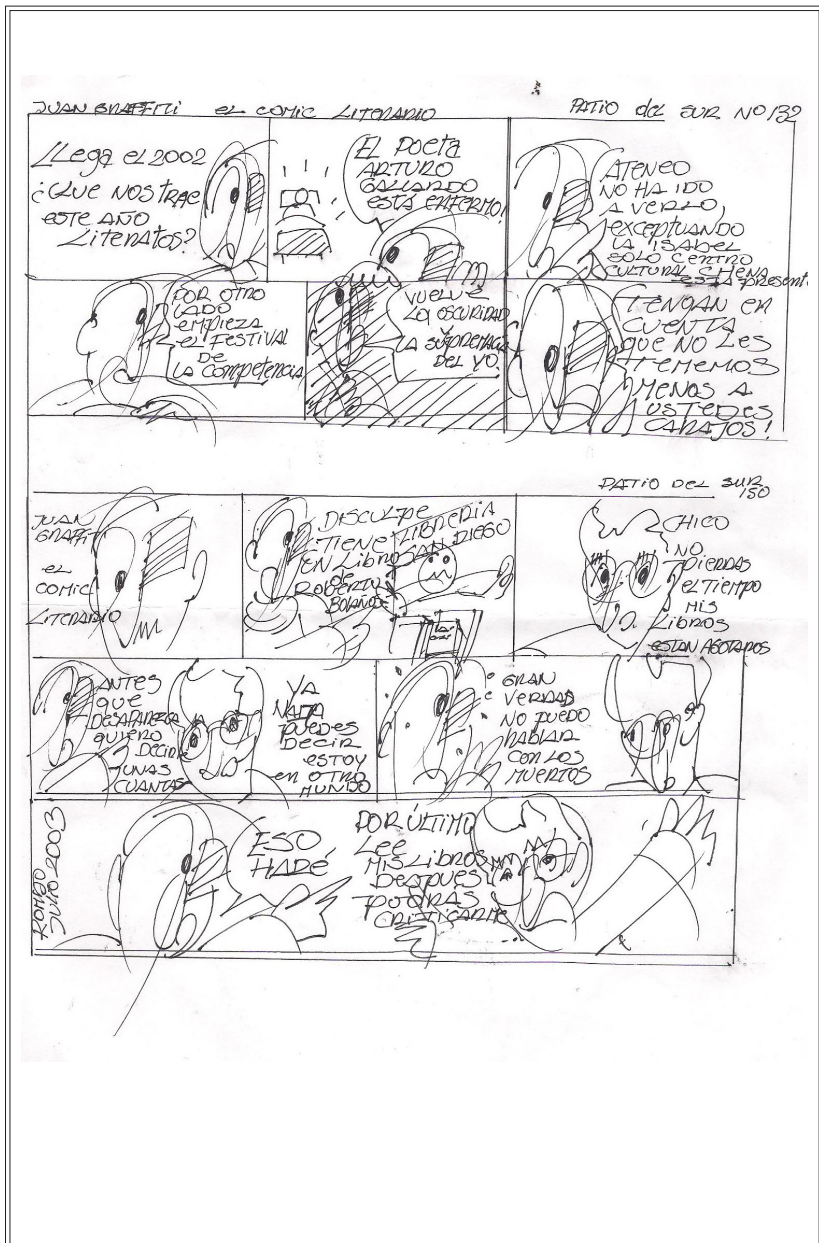 JUAN GRAFFITI el COMIC LITERARIO
PATIO del SUR Nº 132
LLega el 2002
¿QUE NOS TRAE
ESTE AÑO
LITERATOS?
EL POETA
ARTURO
GALLARDO
ESTÁ ENFERMO!
ATENEO
NO HA IDO
A VERLO,
EXCEPTUANDO
LA ISABEL
SOLO CENTRO
CULTURAL CHENA
ESTÁ PRESENTE
POR OTRO
LADO
EMPIEZA
el FESTIVAL
DE
LA COMPETENCIA
VUELVE
LA OSCURIDAD
Y
LA SUPREMACIA
DEL YO.
TENGAN EN
CUENTA
QUE NO LES
TEMEMOS
MENOS A
USTEDES
CARAJOS!
PATIO DEL SUR
150
JUAN
GRAFFITI
el
COMIC
LITERARIO
DISCULPE
TIENE
UN LIBRO
de
ROBERTO
BOLAÑO
LIBRERIA
SAN DIEGO
CHICO
NO
PIERDAS
EL TIEMPO
MIS
LIBROS
ESTAN AGOTADOS
ANTES
QUE
DESAPAREZCA
QUIERO
DECIR
UNAS
CUANTAS
YA
NADA
PUEDES
DECIR
ESTOY
EN OTRO
MUNDO
GRAN
VERDAD
NO PUEDO
HABLAR
CON LOS
MUERTOS
ROMBO
JULIO 2003
ESO
HARÉ
POR ÚLTIMO
LEE
MIS LIBROS
DESPUES
PODRAS
CRITICARME